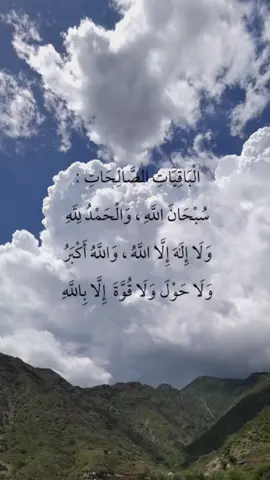 الْبَاقِيَاتِ الصَّالِحَاتِ :
سُبْحَانَ اللَّهِ ، وَالْحَمْدُ لِلَّهِ
وَلَا إِلَهَ إِلَّا اللَّهُ ، وَاللَّهُ أَكْبَرُ
وَلَا حَوْلَ وَلَا قُوَّةَ إِلَّا بِاللَّهِ